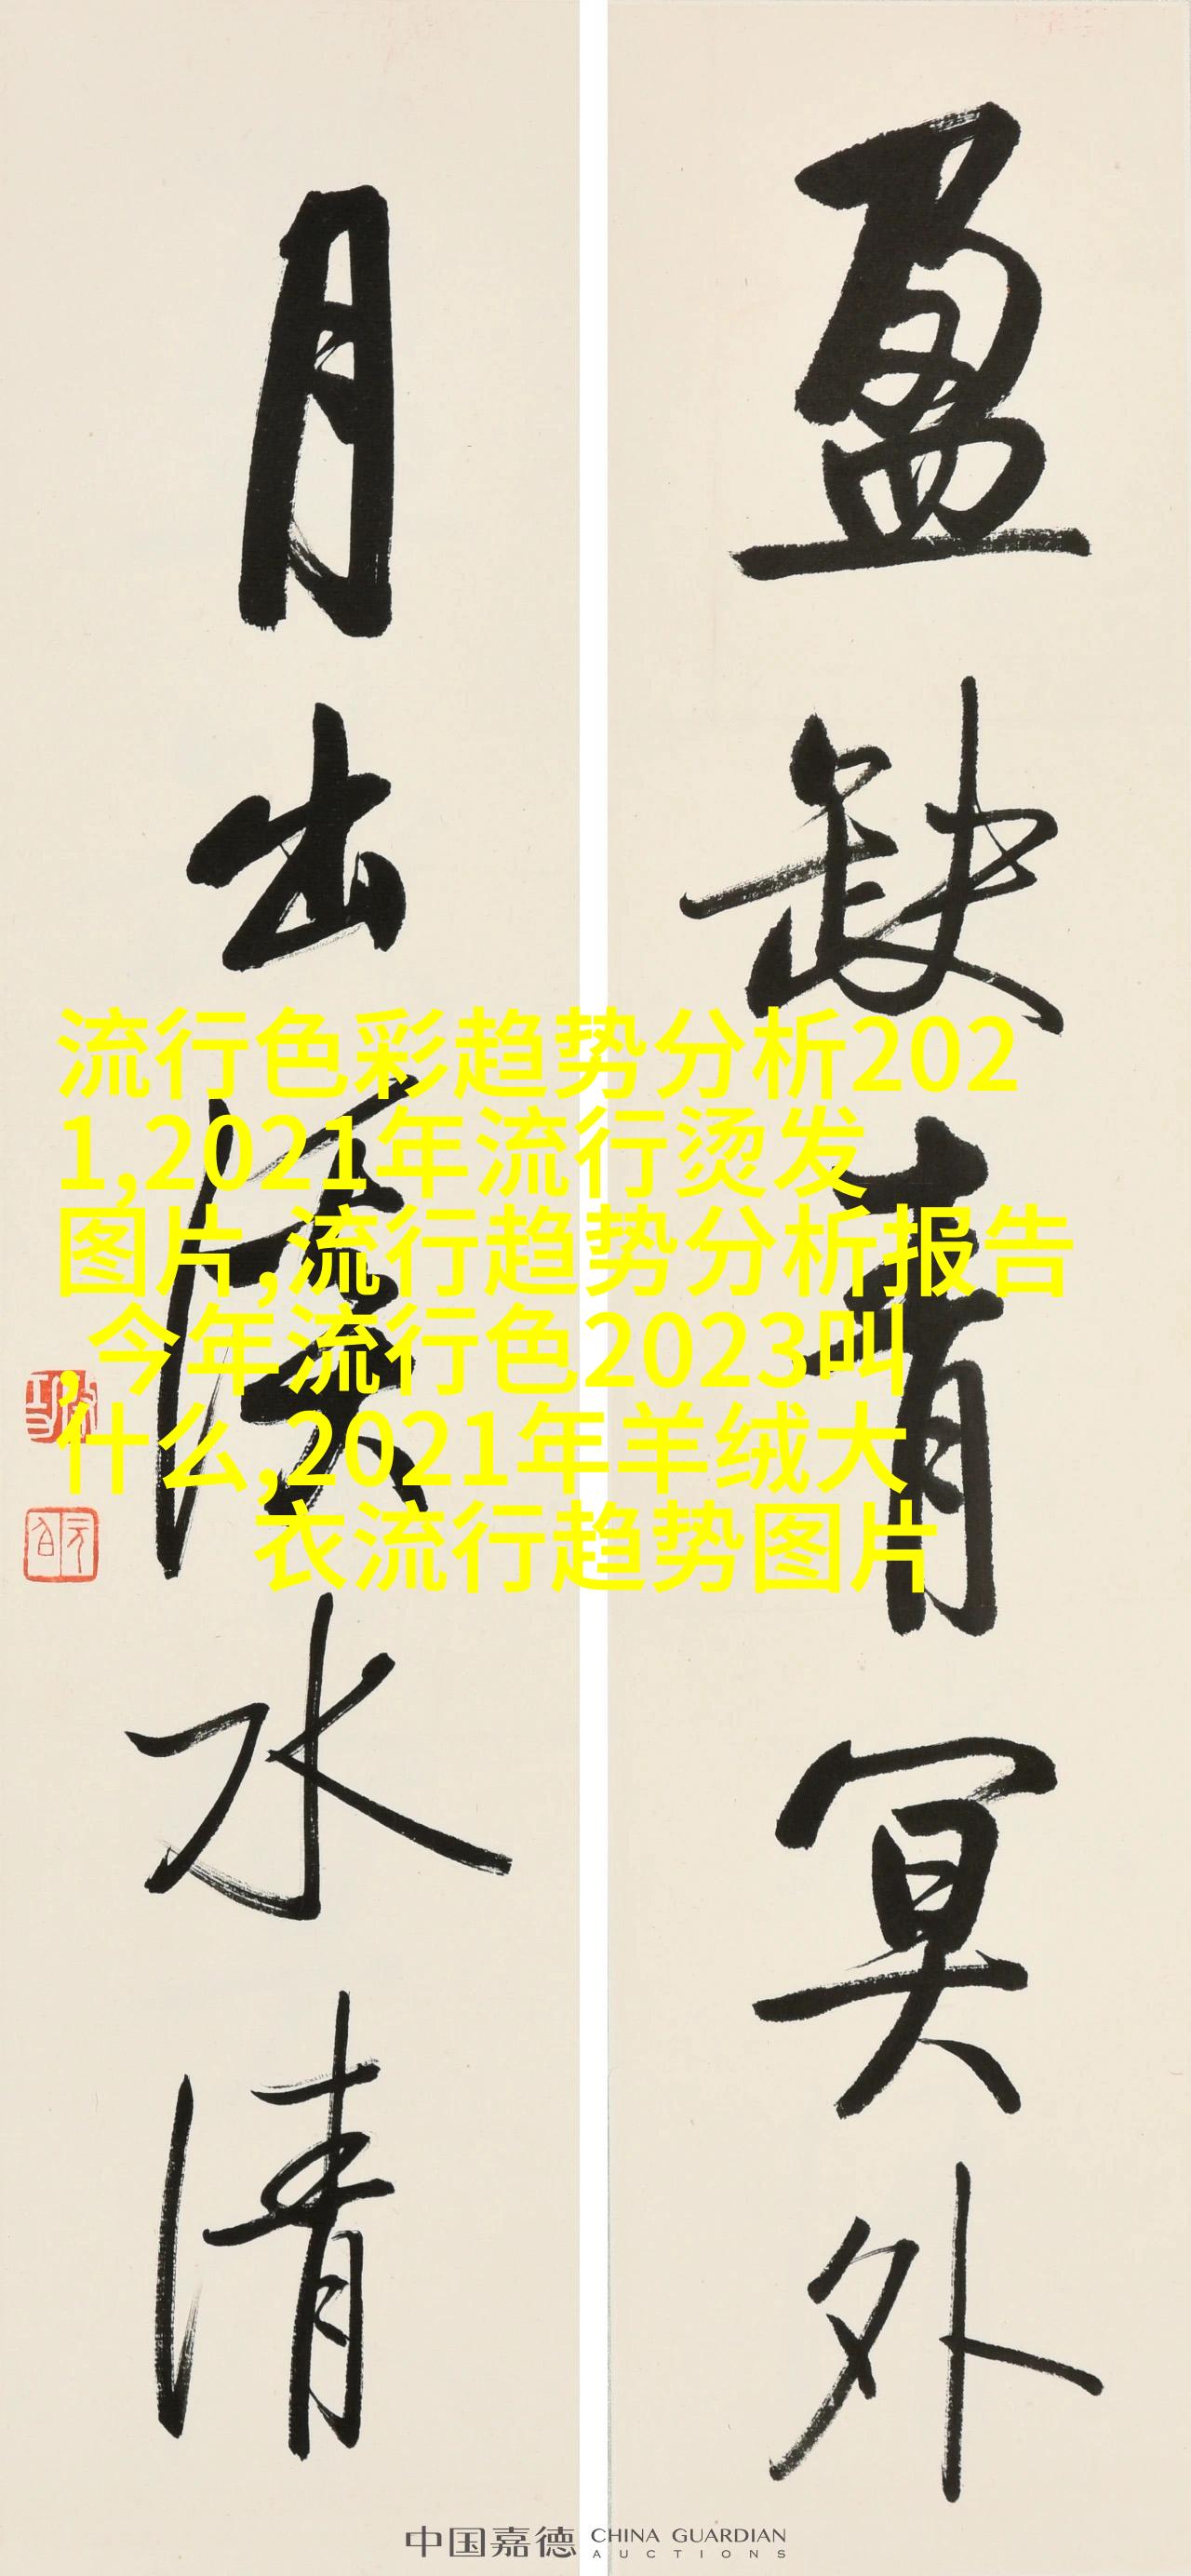 盈缺青冥外
月出溪水清
流行色彩趋势分析202
1,2021年流行烫发
图片,流行趋势分析报告
,今年流行色2023叫
什么,2021年羊绒大
衣流行趋势图片
元白
中国嘉德 CHINA GUARDIAN
AUCTIONS